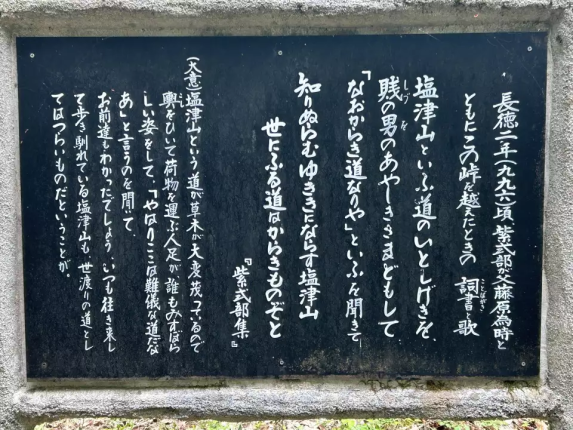 長徳二年(九九六)頃、紫式部が父藤原為時と
ともにこの峠を越えたときの 詞書と歌
ことばがき
塩津山といふ道のいとしげきを、
賎の男のあやしきさまどもして
しづ を
「なおからき道なりや」といふを聞きて
知りぬらむゆききにならす塩津山
世にふる道はからきものぞと
『紫式部集』
(大意)塩津山という道が草木が大変茂っているので
輿をひいて荷物を運ぶ人足が誰もみすぼら
しい姿をして、「やはりここは難儀な道だな
あ」と言うのを聞いて、
お前達もわかったでしょう。いつも往き来し
て歩き馴れている塩津山も、世渡りの道とし
てはつらいものだということが。